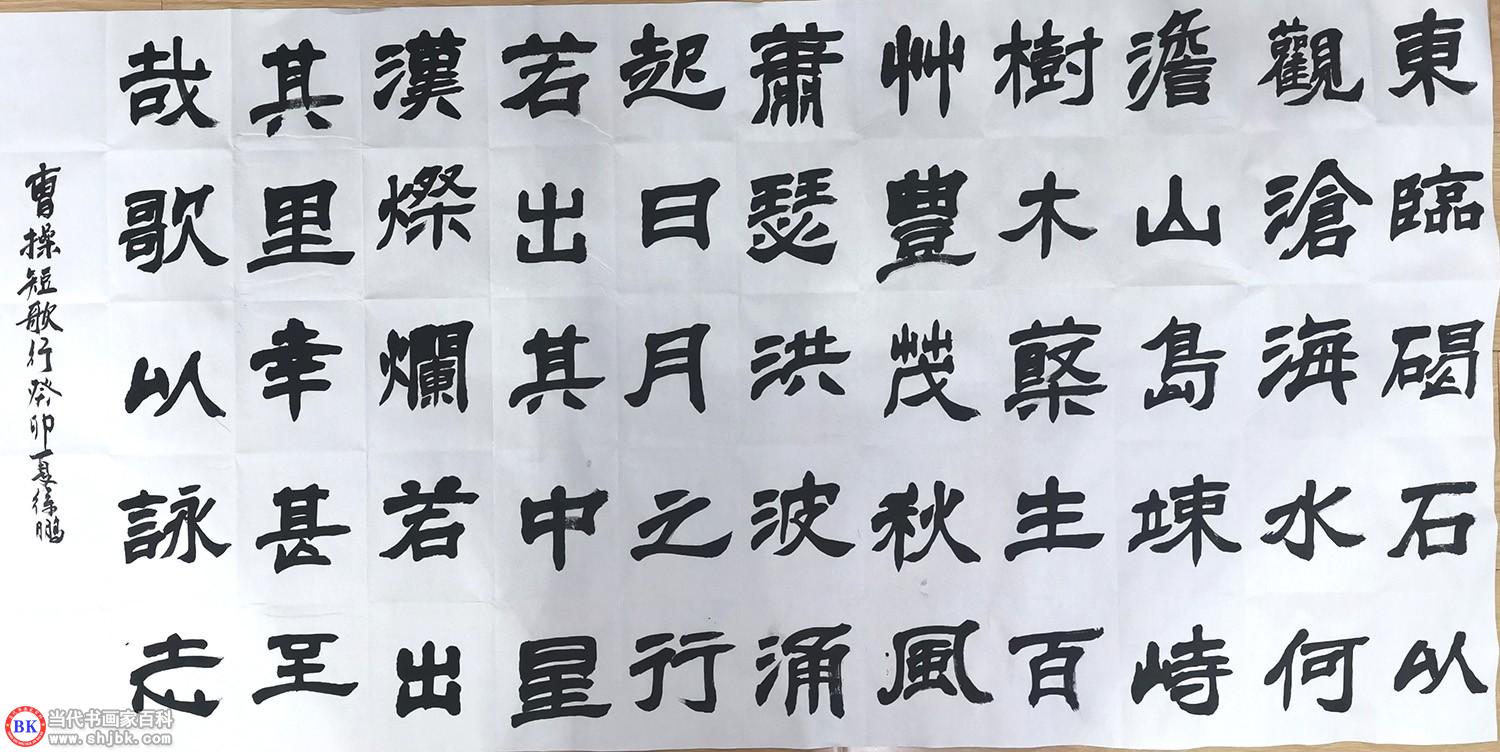 東臨碣石以
觀滄海水何
澹山島竦峙
樹木藂生百
艸豐茂秋風
蕭瑟洪波涌
起日月之行
若出其中星
漢燦爛若出
其里幸甚至
哉歌以詠志
曹操短歌行癸卯夏徐鵬
BK
当代书画家百科
www.shjbk.com